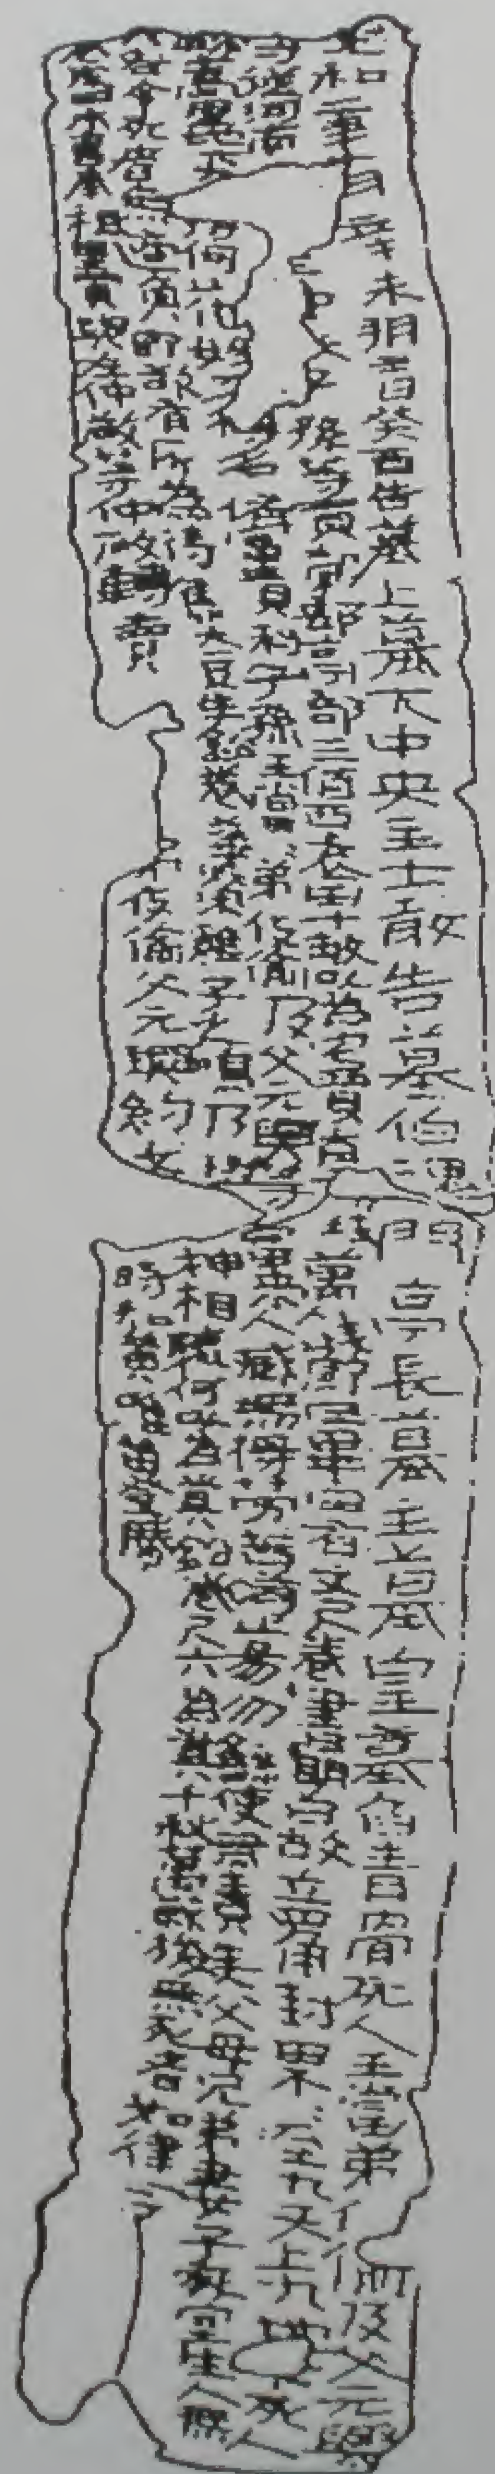 光和二年十月辛未朔三日癸酉告墓上墓下中央主土敢告墓伯魂門亭長墓主墓皇墓臽青骨死人王當弟伎偷及父元興
從河南 孫等買穀郟亭部三佰西袁田十畝以為宅賈直錢萬錢即日畢田有丈尺券書明白故立四角封界界至九天上九地下死人
歸蒿里地下 何 姓 名佑富貴利子孫王當當弟伎偷及父元興等當來人臧無得勞苦苛止易勿繇使無責生人父母兄弟妻子家室生人無
責各令死者無適負即欲有所為待焦大豆生鉛券華榮雞子之鳴乃與神相聽何以為真鉛券尺六為真千秋萬歲後無死者如律令
券成田本曹奉祖田賣與左仲敬等仲敬轉賣 弟伎偷父元興約文 時知黃唯留登勝